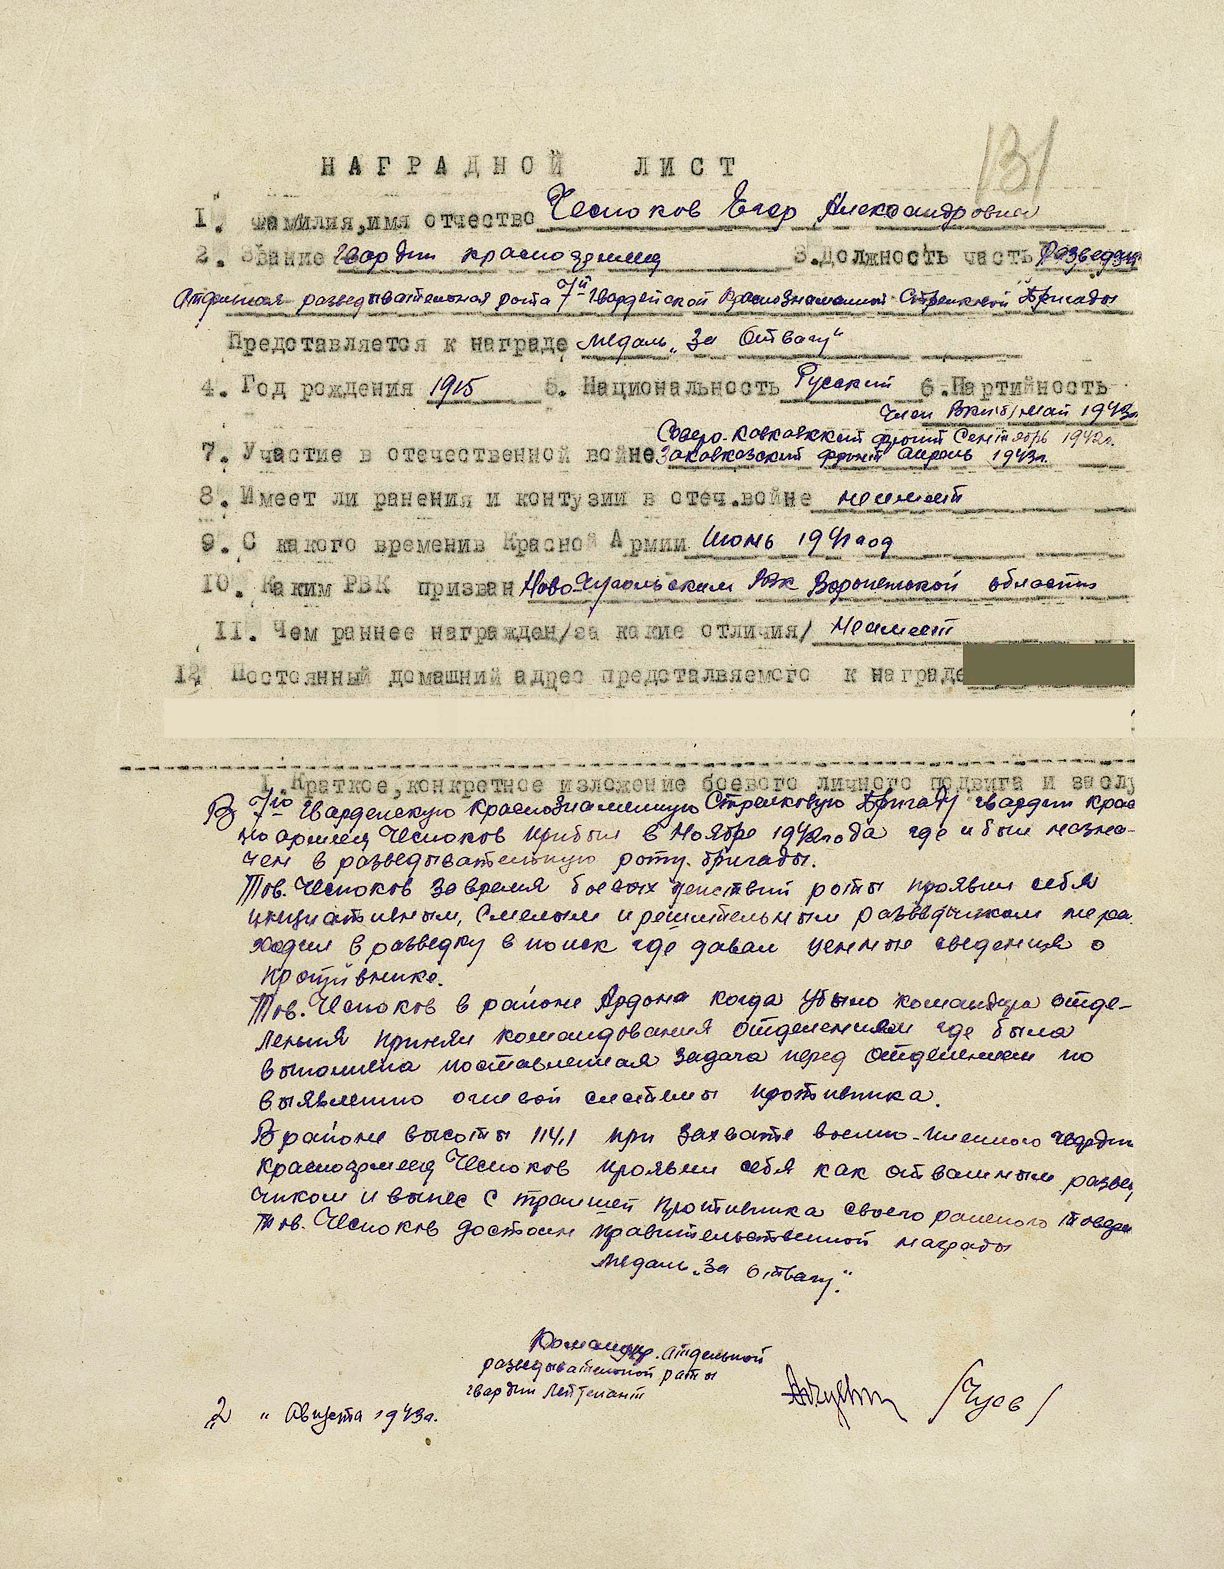 131
НАГРАДНОЙ ЛИСТ
1. Фамилия,имя отчество Чесноков Егор Александрович
2. Звание Гвардии красноармеец 3.Должность часть Разведчик
Отдельная разведывательная рота 7й Гвардейской Краснознаменной Стрелковой Бригады
Представляется к награде медаль „За Отвагу"
4. Год рождения 1915 5. Национальность Русский 6.Партийность
Член ВКП(б) май 1943г.
Северо-Кавказский фронт Сентябрь 1942г.
7. Участие в отечественной войне Закавказский фронт апрель 1943г.
8. Имеет ли ранения и контузии в отеч.войне не имеет
9. С какого временив Красной Армии Июнь 1941год
10. Каким РВК призван Ново-Усманьским РВК Воронежской области
II. Чем раннее награжден/за какие отличия/ Не имеет
12 Постоянный домашний адрес предсталвяемого к награде
I.Краткое,конкретное изложение боевого личного подвига и заслу
В 7ю Гвардейскую Краснознаменную Стрелковую Бригаду гвардии крас
ноармеец Чесноков прибыл в Ноябре 1942года где и был назна-
чен в разведывательную роту бригады.
Тов. Чесноков за время боевых действий роты проявил себя
инициативным, смелым и решительным разведчиком
ходил в разведку в поиск где давал ценные сведения о
противнике.
Тов. Чесноков в районе Ардона когда убыло командира отде-
ления принял командования отделением где была
выполнена поставленная задача перед отделением по
выявлению огневой системы противника.
В районе высоты 114,1 при захвате военно-пленного гвардии
красноармеец Чесноков проявил себя как отважным развед
чиком и вынес с траншей противника своего раненого товари
Тов. Чесноков достоин правительственной награды
медаль „За отвагу".
Командир отдельной
разведывательной роты
гвардии лейтенант
/Чуев/
2 " Августа 1943г.